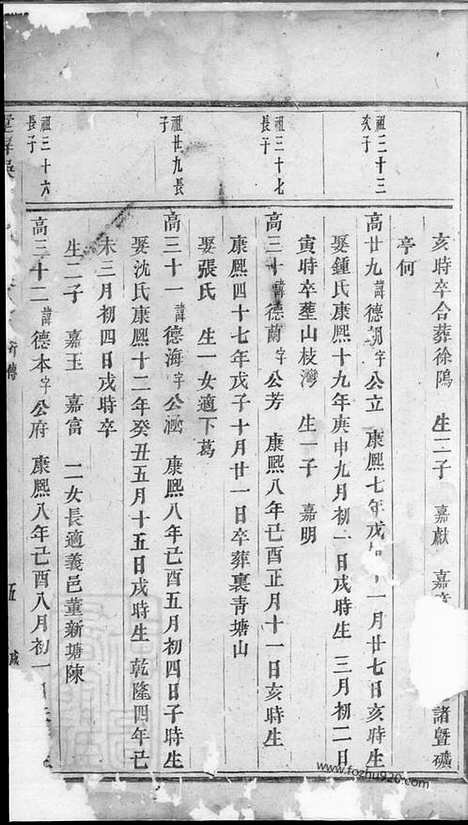 亥時卒合葬徐鴫 生二子 嘉獻 嘉 諸暨礦
亭何
祖二十三
次子
高廿九諱德 字公立 康熙七年戊 一月廿七日亥時生
娶鍾氏康熙十九年庚申九月初一日戌時生 三月初二日
寅時卒塟山枝灣 生一子 嘉明
祖三十七
長子
高三十諱德蘭字公芳 康熙八年己酉正月十一日亥時生
康熙四十七年戊子十月廿一日卒葬裏青塘山
娶張氏 生一女適下葛
祖廿九長
子
高三十一諱德海字公涵 康熙八年己酉五月初四日子時生
娶沈氏康熙十二年癸丑五月十五日戌時生 乾隆四年己
未三月初四日戌時卒
生二子 嘉玉 嘉富 二女長適義邑董新塘陳
祖三十六
長子
高三十二諱德本字公府 康熙八年己酉八月初一
行傳
五
www.fozhu920.com